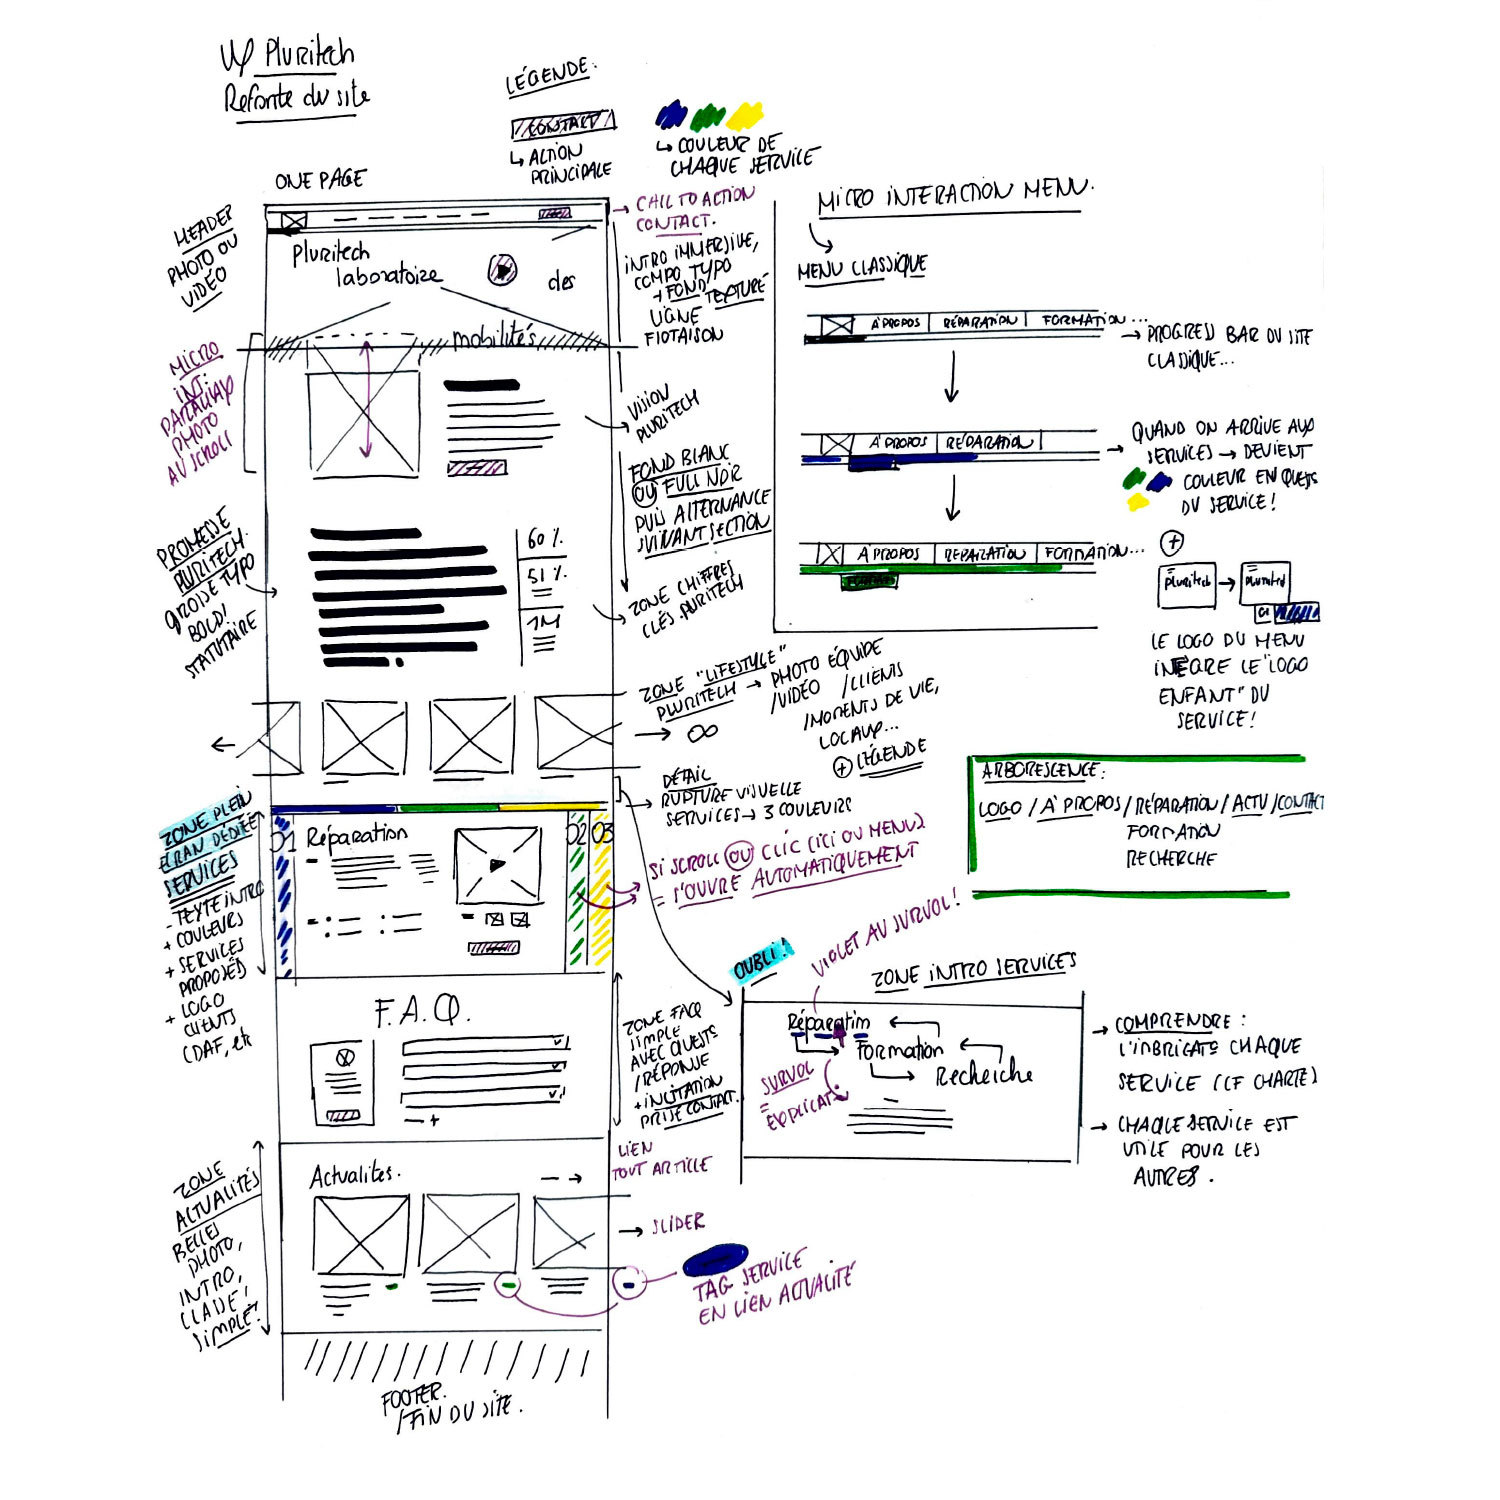 Pluritech
Refonte du site
LÉGENDE:
CONTACT
↳ ACTION
PRINCIPALE
↳ COULEUR DE
CHAQUE SERVICE
ONE PAGE
HEADER
PHOTO OU
VIDÉO
→ CALL TO ACTION
CONTACT.
Pluritech
laboratoire
des
mobilités
INTRO IMMERSIVE,
COMPO TYPO
+ FOND TEXTURÉ
LIGNE
FLOTAISON
MICRO
INT:
PARALLAX
PHOTO
AU SCROLL
VISION
PLURITECH
FOND BLANC
OU FULL NOIR
PUIS ALTERNANCE
SUIVANT SECTION
PROMESSE
PLURITECH.
GROSSE TYPO
BOLD/
STATUTAIRE
60 %
51 %
1M
ZONE CHIFFRES
CLÉS PLURITECH
ZONE "LIFESTYLE"
PLURITECH → PHOTO ÉQUIPE
/VIDÉO /CLIENTS
/MOMENTS DE VIE,
LOCAUX...
+ LÉGENDE
→ ∞
DÉTAIL
→ RUPTURE VISUELLE
SERVICES → 3 COULEURS
ZONE PLEIN
ECRAN DÉDIÉE
SERVICES
- TEXTE INTRO
+ COULEURS
+ SERVICES
PROPOSÉS
+ LOGO
CLIENTS
CDAF, etc
01
Réparation
02
03
SI SCROLL OU CLIC (ICI OU MENU)
= S'OUVRE AUTOMATIQUEMENT
F.A.Q.
ZONE FAQ
SIMPLE
AVEC QUESTS
/RÉPONSE
+ INCITATION
PRISE CONTACT.
ZONE
ACTUALITÉS
BELLES
PHOTO,
INTRO,
CLASSE,
SIMPLE!
Actualités.
LIEN
TOUT ARTICLE
→ SLIDER
TAG SERVICE
EN LIEN ACTUALITÉ
FOOTER.
/FIN DU SITE.
MICRO INTERACTION MENU.
MENU CLASSIQUE
À PROPOS | RÉPARATION | FORMATION...
→ PROGRESS BAR DU SITE
CLASSIQUE...
À PROPOS | RÉPARATION |
→ QUAND ON ARRIVE AUX
SERVICES → DEVIENT
COULEUR EN QUEST°
DU SERVICE!
À PROPOS | REPARATION | FORMATION...
+
Pluritech → Pluritech
LE LOGO DU MENU
INTÈGRE LE "LOGO
ENFANT" DU
SERVICE!
ARBORESCENCE:
LOGO / À PROPOS / RÉPARATION / ACTU / CONTACT
FORMATION
RECHERCHE
OUBLI!
VIOLET AU SURVOL!
ZONE INTRO SERVICES
Réparation
Formation
Recherche
SURVOL
=
EXPLICAT°
→ COMPRENDRE :
L'IMBRICAT° CHAQUE
SERVICE (CF CHARTE)
→ CHAQUE SERVICE EST
UTILE POUR LES
AUTRES.